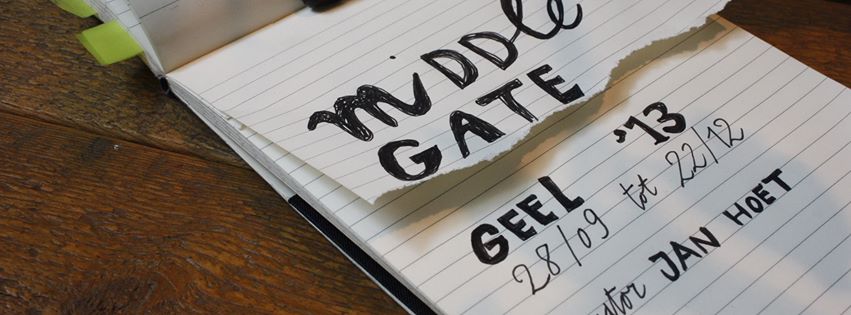 MiDDle
GATE
GEEL '13
28/09 tot 22/12
JAN HOET